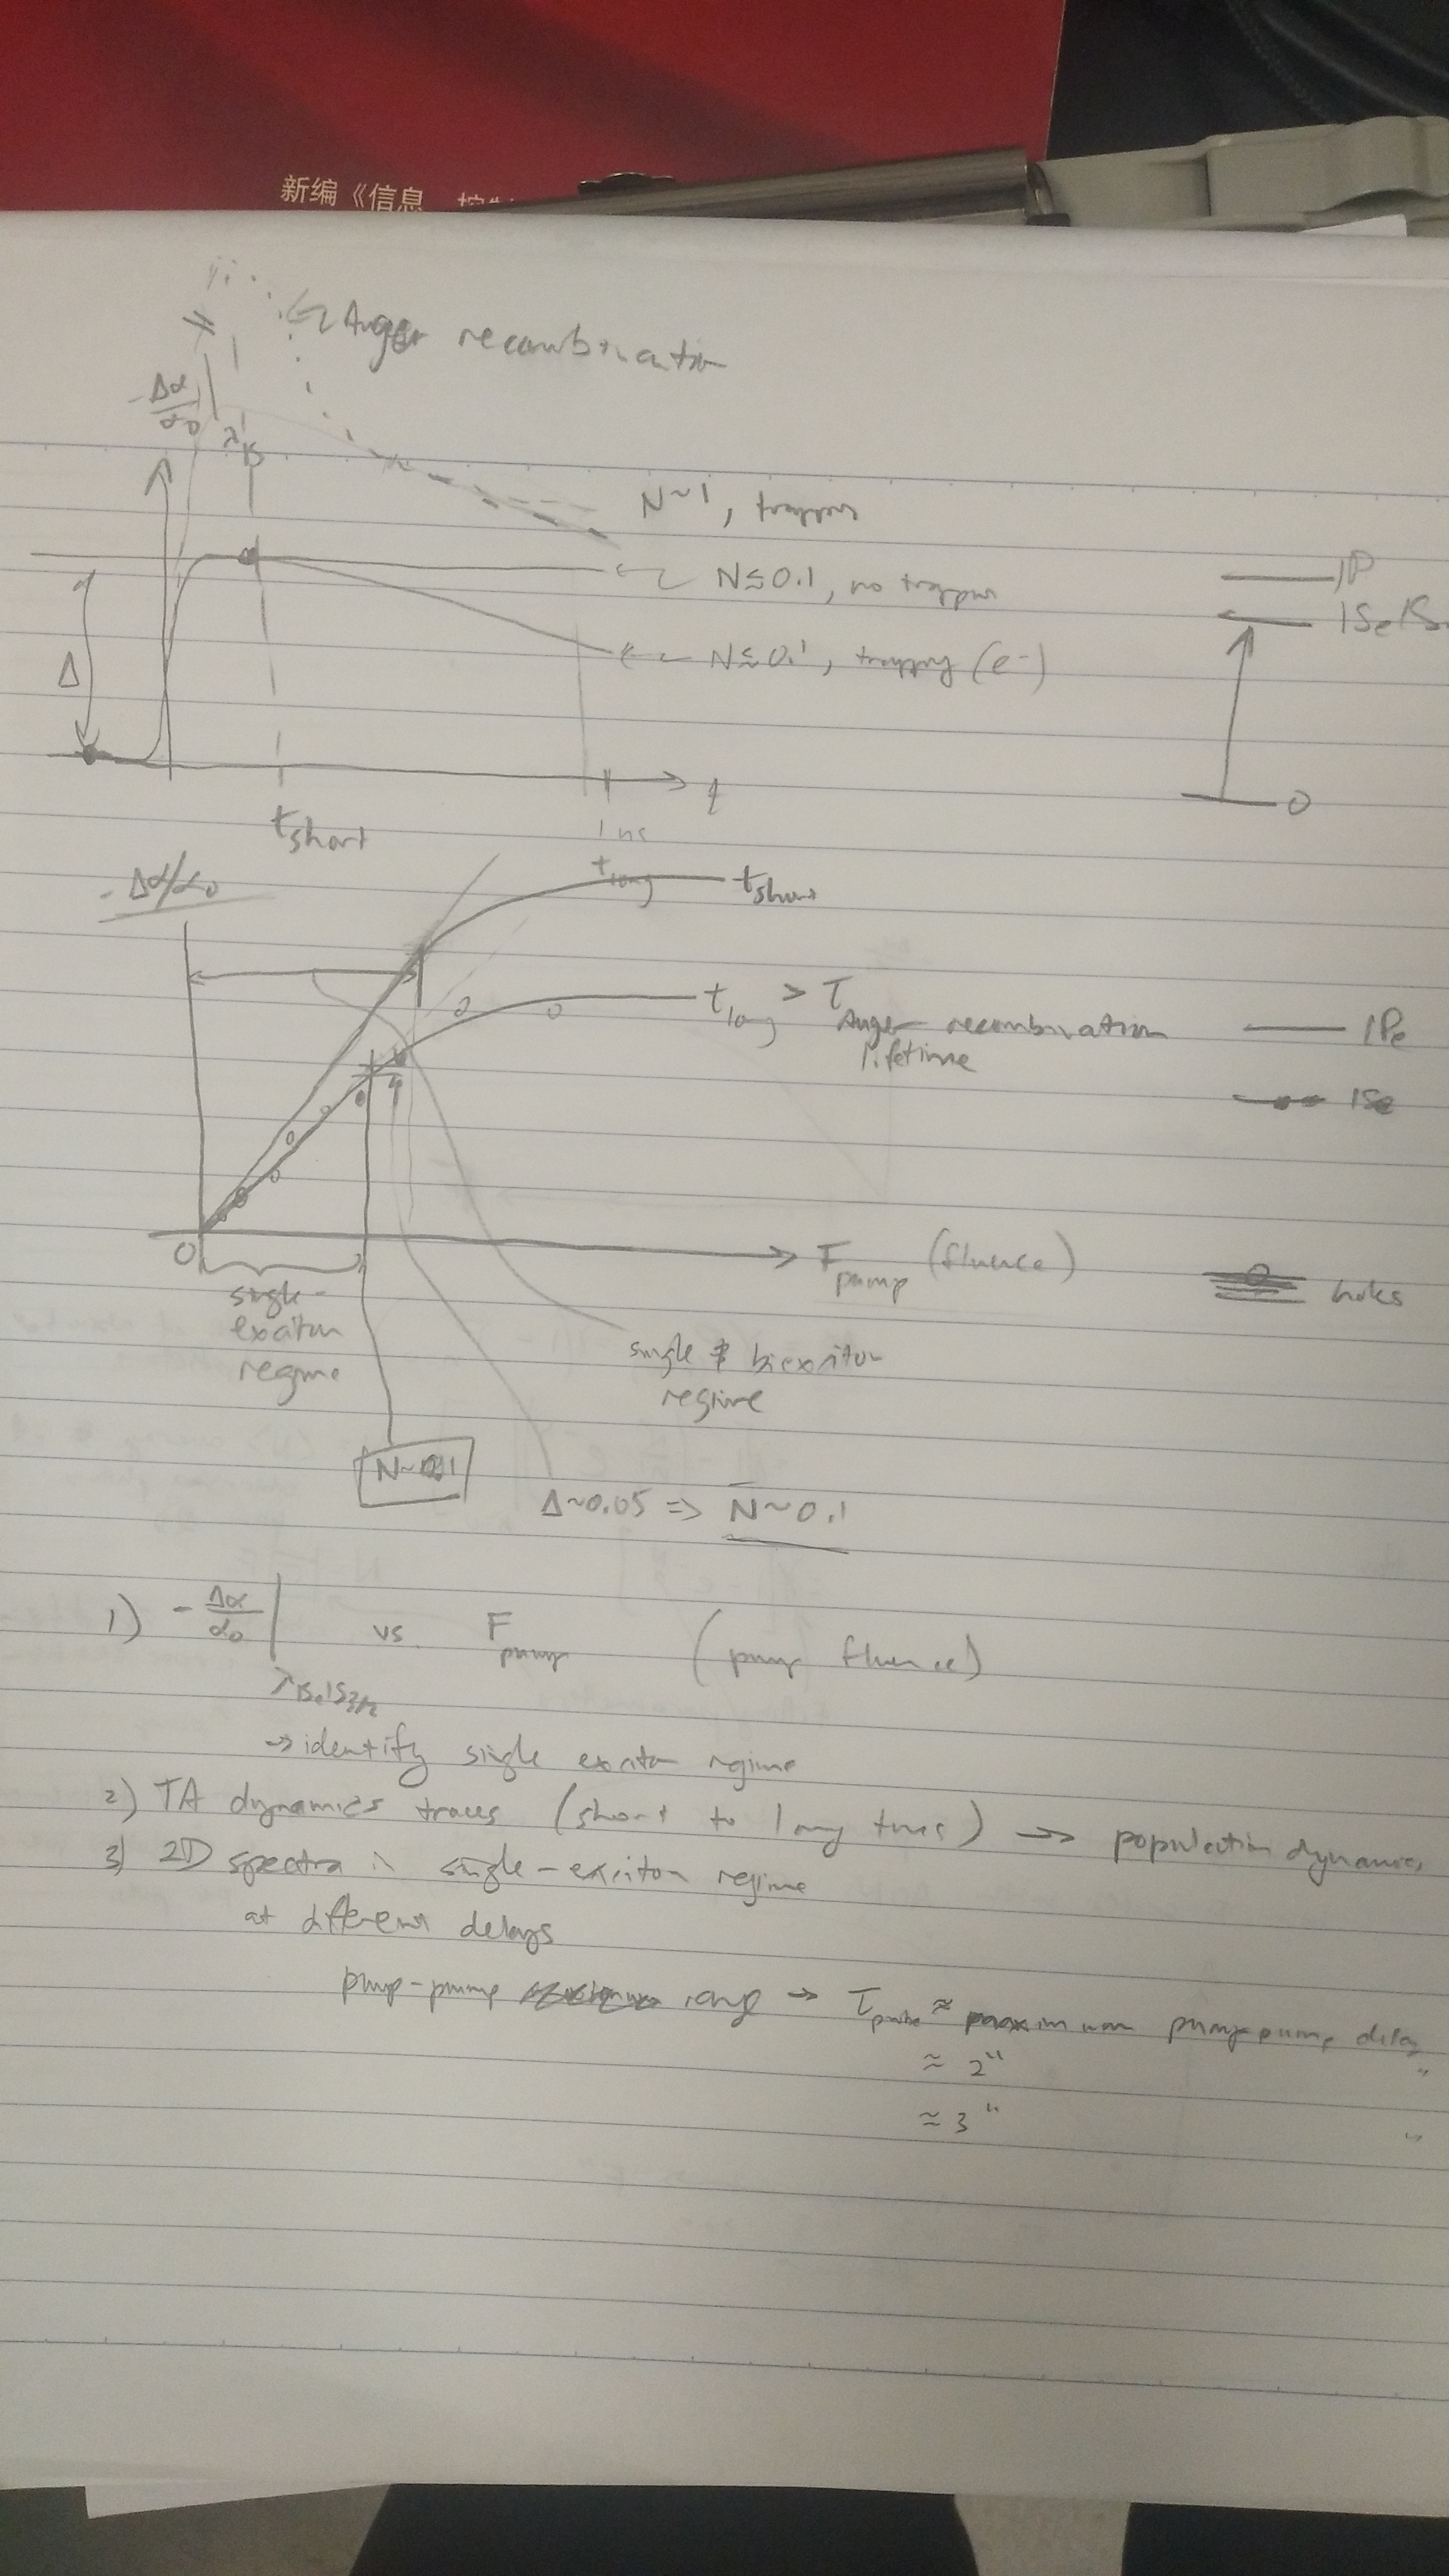 新编《信息
Auger recombination
-Δα/α₀ |
λ1S
N~1, trapping
N≲0.1, no trapping
N≲0.1, trapping (e⁻)
1P
1Se1S
Δ
0
t
t_short
1 ns
-Δα/α₀
t_long
t_short
t_long > τ Auger recombination lifetime
1Pe
1Se
0
F_pump (fluence)
holes
single-
exciton
regime
single & biexciton
regime
N~0.1
Δ~0.05 => N̄~0.1
1) -Δα/α₀ | vs. F_pump (pump fluence)
λ1Se1S3/2
→ identify single exciton regime
2) TA dynamics traces (short to long times) → population dynamics
3) 2D spectra in single-exciton regime
at different delays
pump-pump range → τ ≈ maximum pump-pump delay
≈ 2 " "
≈ 3 " "